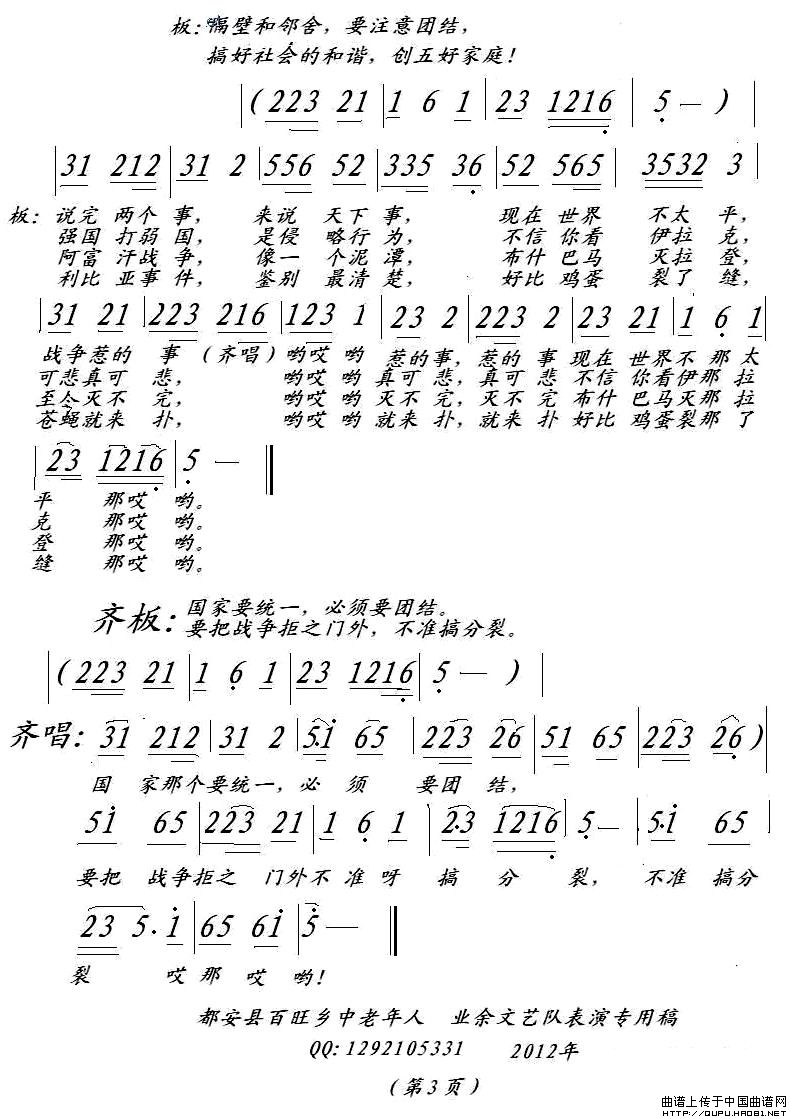 板:隔壁和邻舍，要注意团结，
搞好社会的和谐，创五好家庭！
(223 21 | 1 6 1 | 23 1216 | 5 — )
31 212 | 31 2 | 556 52 | 335 36 | 52 565 | 3532 3
板：说完 两个 事， 来说 天下 事， 现在 世界 不太 平，
强国 打弱 国， 是侵 略行 为， 不信 你看 伊拉 克，
阿富 汗战 争， 像一 个泥 潭， 布什 巴马 灭拉 登，
利比 亚事 件， 鉴别 最清 楚， 好比 鸡蛋 裂了 缝，
31 21 | 223 216 | 123 1 | 23 2 | 223 2 | 23 21 | 1 6 1
战争惹的 事（齐唱）哟哎 哟 惹的事，惹的 事 现在 世界不 那 太
可悲真可 悲， 哟哎 哟 真可 悲，真可 悲 不信 你看伊那 拉
至今灭不 完， 哟哎 哟 灭不 完，灭不 完 布什 巴马灭那 拉
苍蝇就来 扑， 哟哎 哟 就来 扑，就来 扑 好比 鸡蛋裂那 了
23 1216 | 5 —
平 那哎 哟。
克 那哎 哟。
登 那哎 哟。
缝 那哎 哟。
齐板：国家要统一，必须要团结。
要把战争拒之门外，不准搞分裂。
(223 21 | 1 6 1 | 23 1216 | 5 — )
齐唱：31 212 | 31 2 | 5·1 65 | 223 26 | 51 65 | 223 26 )
国 家那个要统一，必 须 要团 结，
51 65 | 223 21 | 1 6 1 | 2·3 1216 | 5 — | 5·1 65
要把 战争拒之 门外不 准 呀 搞 分 裂， 不准 搞分
23 5·1 | 65 61 | 5 —
裂 哎 那 哎 哟！
都安县百旺乡中老年人 业余文艺队表演专用稿
QQ:1292105331 2012年
（第3页）
曲谱上传于中国曲谱网
HTTP://QUPU.HAO81.NET